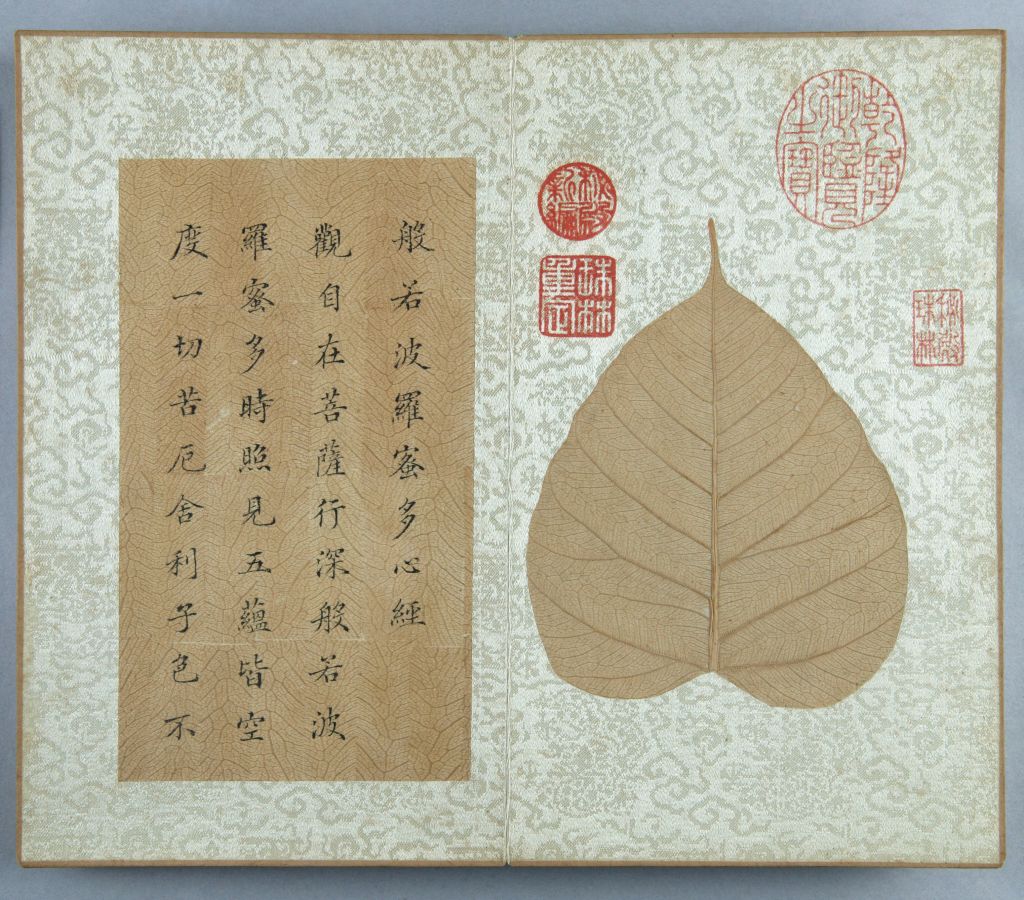 乾隆
御覽
之寶
秘殿
珠林
秘殿
新編
珠林
重定
般若波羅蜜多心經
觀自在菩薩行深般若波
羅蜜多時照見五蘊皆空
度一切苦厄舍利子色不